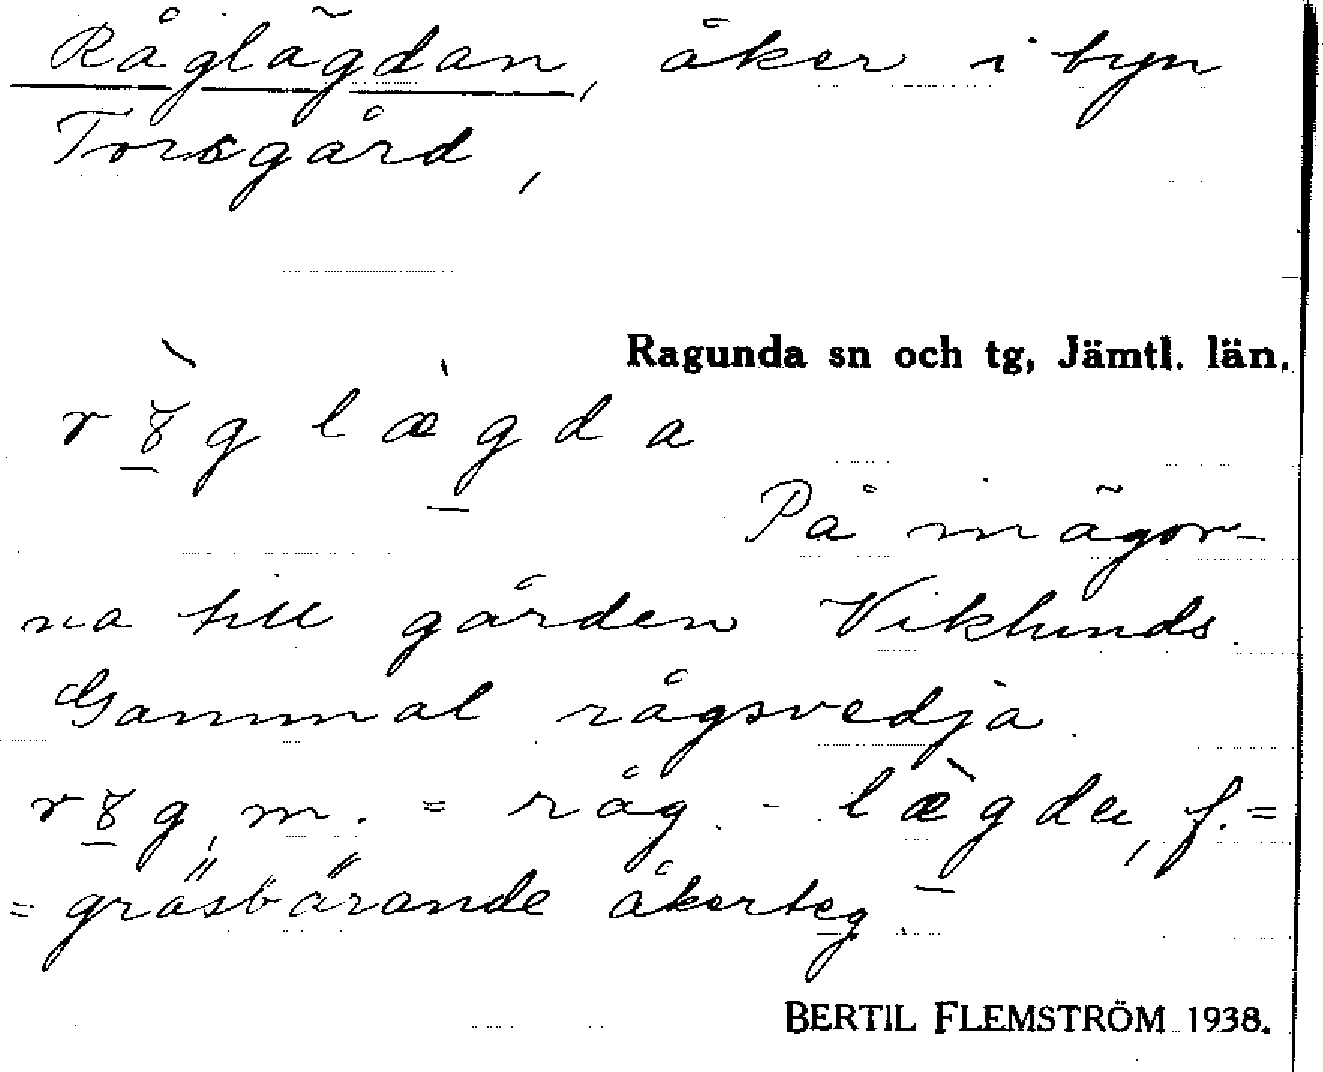 Råglägdan, åker i byn
Torsgård,
Ragunda sn och tg, Jämtl. län.
På inägor-
na till gården Viklunds.
Gammal rågsvedja.
m. = råg. - f. =
= gräsbärande åkerteg
BERTIL FLEMSTRÖM 1938.